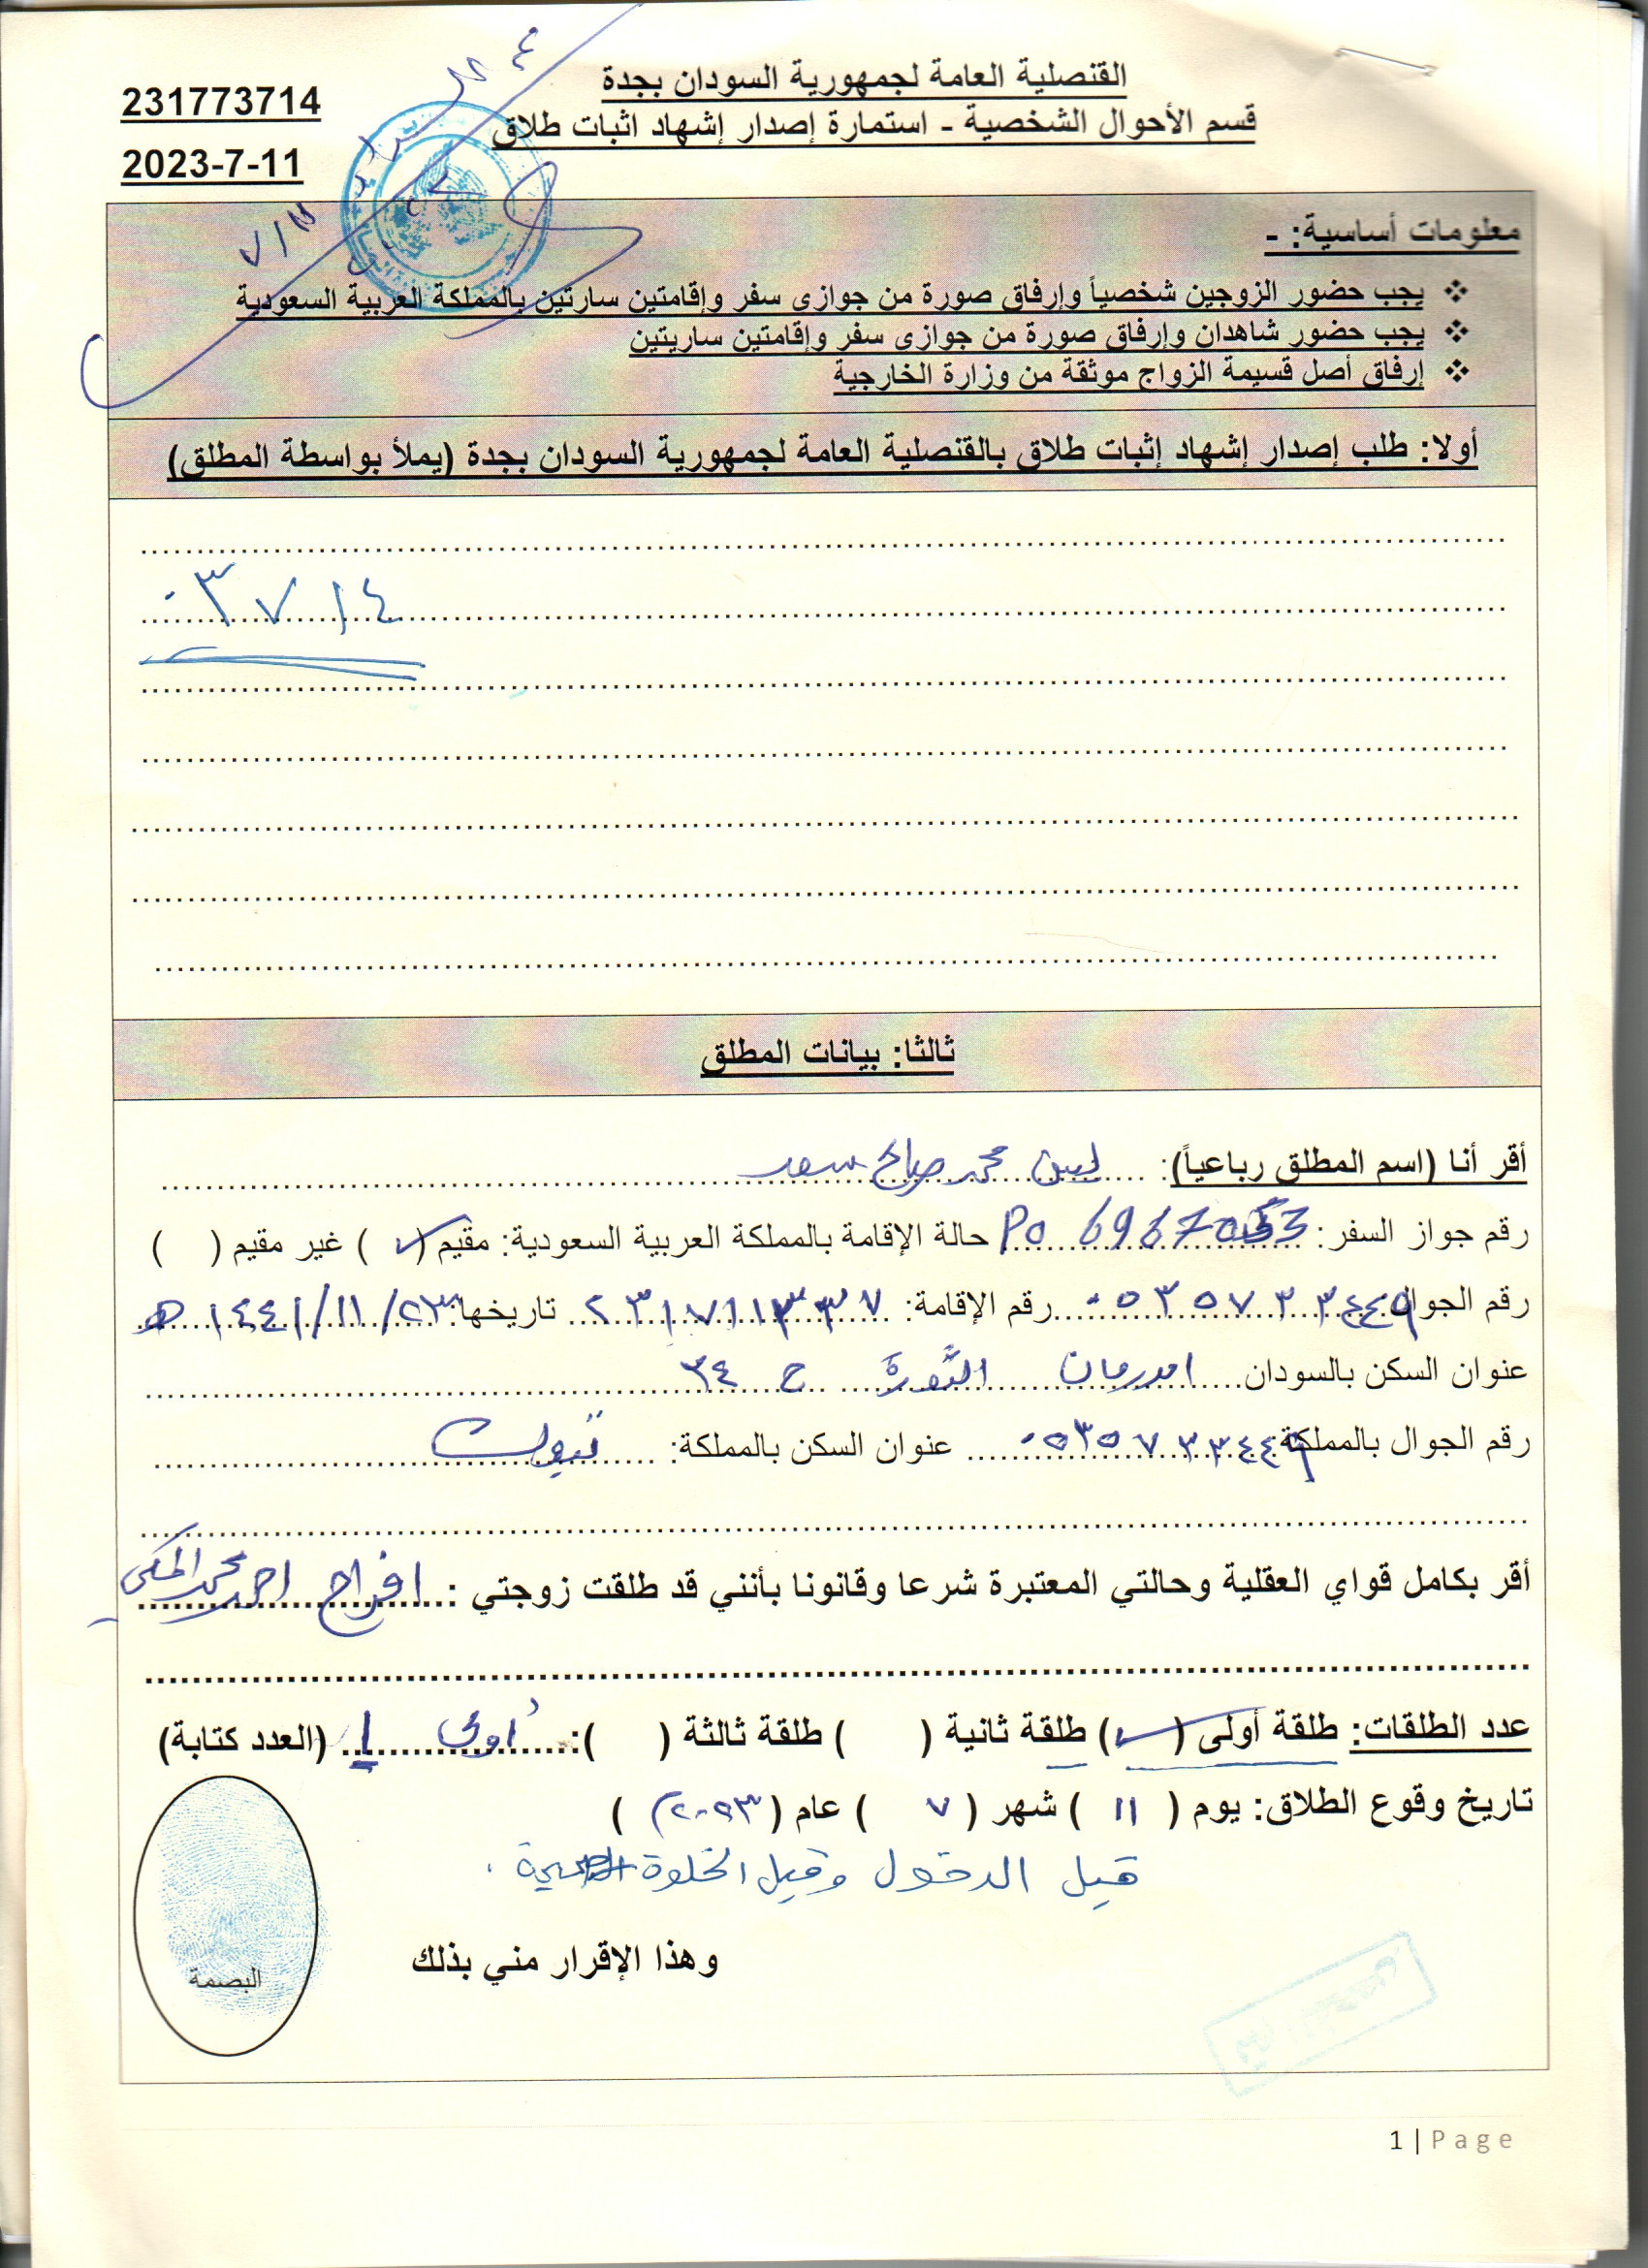 القنصلية العامة لجمهورية السودان بجدة
قسم الأحوال الشخصية - استمارة إصدار إشهاد اثبات طلاق
231773714
2023-7-11
٧/١١
معلومات أساسية: -
❖ يجب حضور الزوجين شخصياً وإرفاق صورة من جوازى سفر وإقامتين سارتين بالمملكة العربية السعودية
❖ يجب حضور شاهدان وإرفاق صورة من جوازى سفر وإقامتين ساريتين
❖ إرفاق أصل قسيمة الزواج موثقة من وزارة الخارجية
أولا: طلب إصدار إشهاد إثبات طلاق بالقنصلية العامة لجمهورية السودان بجدة (يملأ بواسطة المطلق)
٠٣٧١٤
ثالثا: بيانات المطلق
أقر أنا (اسم المطلق رباعياً): محمد صالح سعد
رقم جواز السفر: حالة الإقامة بالمملكة العربية السعودية: مقيم (✓) غير مقيم ( )
رقم الجوال ٠٥٣٥٧٣٣٤٤٩ رقم الإقامة: تاريخها: ١٤٤١/١١/٢٣ هـ
عنوان السكن بالسودان امدرمان الثورة ح ٣٤
رقم الجوال بالمملكة ٠٥٣٥٧٣٣٤٤٩ عنوان السكن بالمملكة: تبوك
أقر بكامل قواي العقلية وحالتي المعتبرة شرعا وقانونا بأنني قد طلقت زوجتي : افراح احمد محمد المكي
عدد الطلقات: طلقة أولى (✓) طلقة ثانية ( ) طلقة ثالثة ( ): أولى ١ (العدد كتابة)
تاريخ وقوع الطلاق: يوم ( ١١ ) شهر ( ٧ ) عام ( ٢٠٢٣ )
قبل الدخول وقبل الخلوة
وهذا الإقرار مني بذلك
البصمة
1 | Page